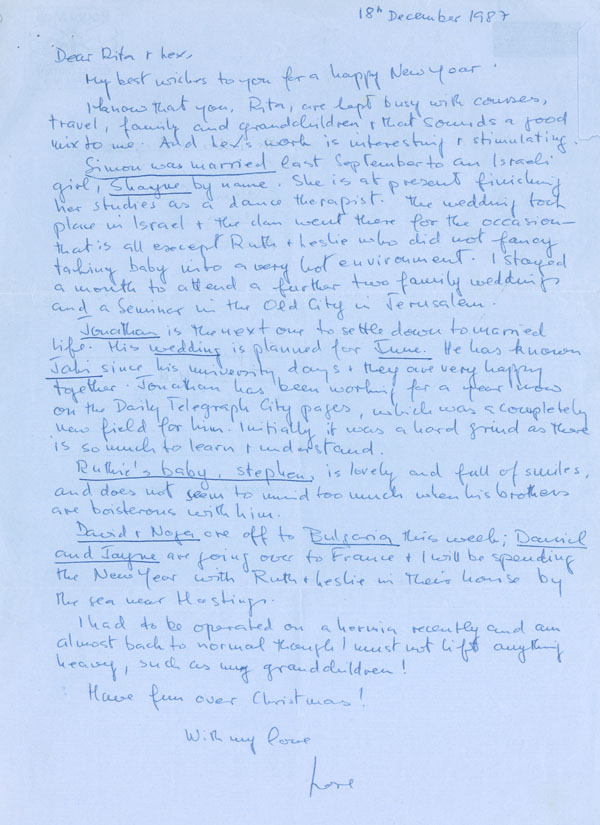 18th December 1987
Dear Rita + Lex,
My best wishes to you for a happy New Year.
I know that you, Rita, are kept busy with courses,
travel, family and grandchildren + that sounds a good
mix to me. And Lex's work is interesting + stimulating.
Simon was married last September to an Israeli
girl, Shayne by name. She is at present finishing
her studies as a dance therapist. The wedding took
place in Israel + the clan went there for the occasion –
that is all except Ruth + Leslie who did not fancy
taking baby into a very hot environment. I stayed
a month to attend a further two family weddings
and a Seminar in the Old City in Jerusalem.
Jonathan is the next one to settle down to married
life. His wedding is planned for June. He has known
since his university days + they are very happy
together. Jonathan has been working for a year now
on the Daily Telegraph City pages, which was a completely
new field for him. Initially it was a hard grind as there
is so much to learn + understand.
Ruthie's baby, Stephen, is lovely and full of smiles,
and does not seem to mind too much when his brothers
are boisterous with him.
David + Noga are off to Bulgaria this week; Daniel
and Jayne are going over to France + I will be spending
the New Year with Ruth + Leslie in their house by
the sea near Hastings.
I had to be operated on a hernia recently and am
almost back to normal though I must not lift anything
heavy, such as my grandchildren!
Have fun over Christmas!
With my love
Lore